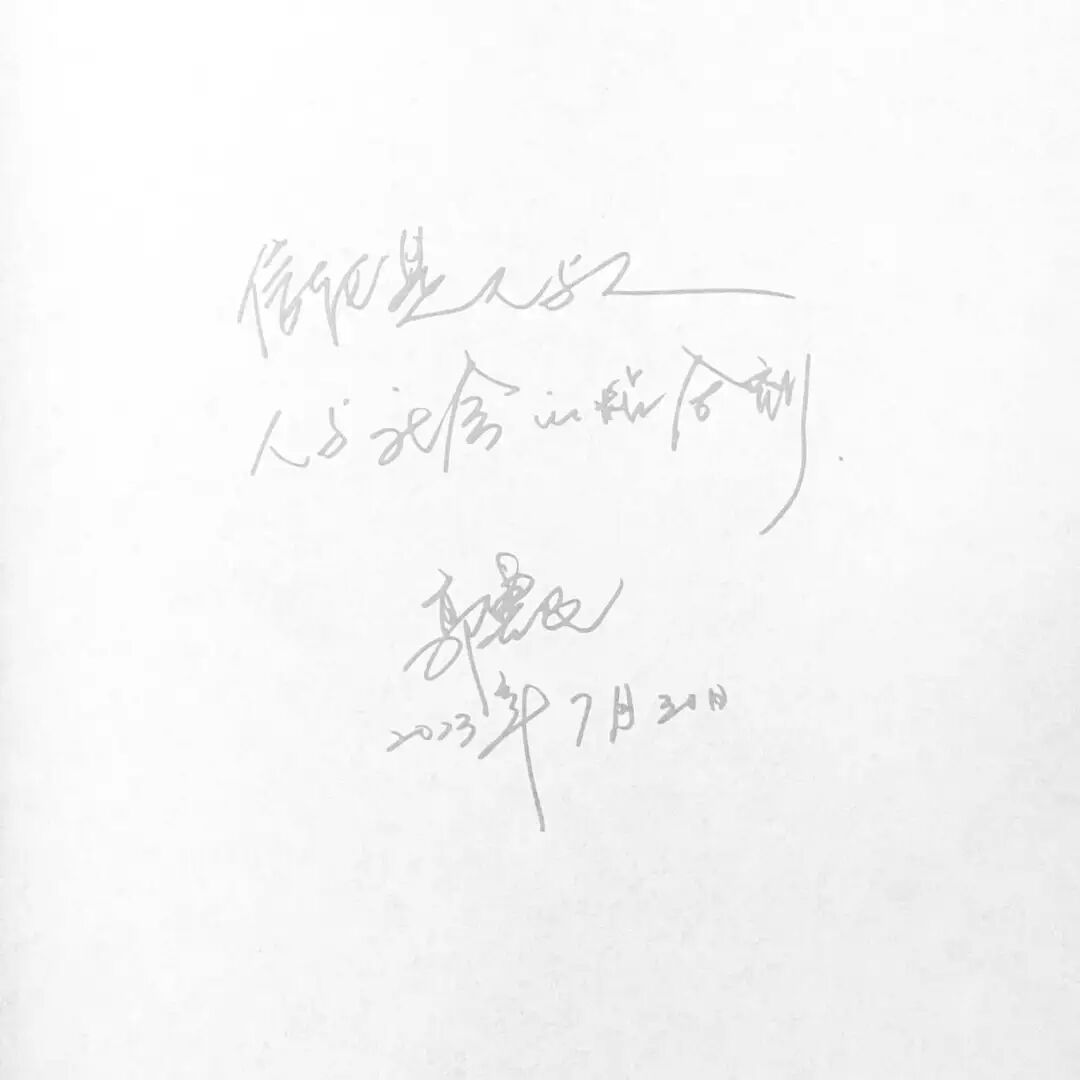 信任是人与人
人与社会的粘合剂.
郭
2023年7月30日